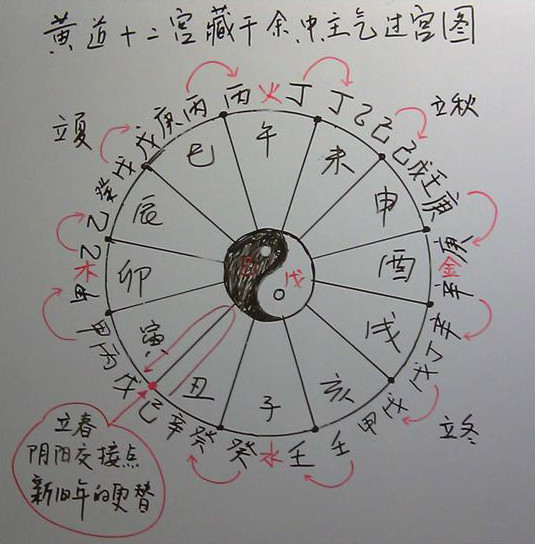 黄道十二宫藏干余中主气过宫图
丙火丁
丁乙己
己戊壬庚
庚金辛
辛丁戊
戊甲壬
壬水癸
癸辛己
戊丙甲
甲木乙
乙癸戊
戊庚丙
午
未
申
酉
戌
亥
子
丑
寅
卯
辰
巳
戊
立夏
立秋
立冬
立春
阴阳交接点
新旧年的更替